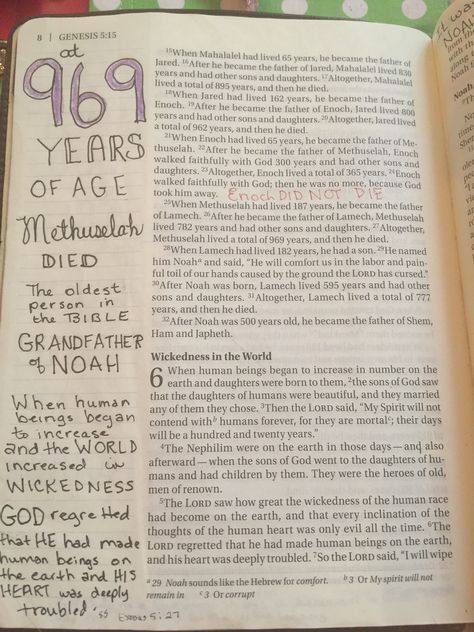 8 | GENESIS 5:15
at
969
YEARS
OF AGE
Methuselah
DIED
The oldest
person in
the BIBLE
GRANDFATHER
of NOAH
When human
beings began
to increase
and the WORLD
increased in
WICKEDNESS
GOD regretted
that HE had made
human beings on
the earth and HIS
HEART was deeply
troubled
5:27
15When Mahalalel had lived 65 years, he became the father of
Jared. 16After he became the father of Jared, Mahalalel lived 830
years and had other sons and daughters. 17Altogether, Mahalalel
lived a total of 895 years, and then he died.
18When Jared had lived 162 years, he became the father of
Enoch. 19After he became the father of Enoch, Jared lived 800
years and had other sons and daughters. 20Altogether, Jared lived
a total of 962 years, and then he died.
21When Enoch had lived 65 years, he became the father of Me-
thuselah. 22After he became the father of Methuselah, Enoch
walked faithfully with God 300 years and had other sons and
daughters. 23Altogether, Enoch lived a total of 365 years. 24Enoch
walked faithfully with God; then he was no more, because God
took him away. Enoch DID NOT DIE
25When Methuselah had lived 187 years, he became the father
of Lamech. 26After he became the father of Lamech, Methuselah
lived 782 years and had other sons and daughters. 27Altogether,
Methuselah lived a total of 969 years, and then he died.
28When Lamech had lived 182 years, he had a son. 29He named
him Noaha and said, "He will comfort us in the labor and pain-
ful toil of our hands caused by the ground the LORD has cursed."
30After Noah was born, Lamech lived 595 years and had other
sons and daughters. 31Altogether, Lamech lived a total of 777
years, and then he died.
32After Noah was 500 years old, he became the father of Shem,
Ham and Japheth.
Wickedness in the World
6 When human beings began to increase in number on the
earth and daughters were born to them, 2the sons of God saw
that the daughters of humans were beautiful, and they married
any of them they chose. 3Then the LORD said, "My Spirit will not
contend withb humans forever, for they are mortalc; their days
will be a hundred and twenty years."
4The Nephilim were on the earth in those days—and also
afterward—when the sons of God went to the daughters of hu-
mans and had children by them. They were the heroes of old,
men of renown.
5The LORD saw how great the wickedness of the human race
had become on the earth, and that every inclination of the
thoughts of the human heart was only evil all the time. 6The
LORD regretted that he had made human beings on the earth,
and his heart was deeply troubled. 7So the LORD said, "I will wipe
a 29 Noah sounds like the Hebrew for comfort. b 3 Or My spirit will not
remain in c 3 Or corrupt